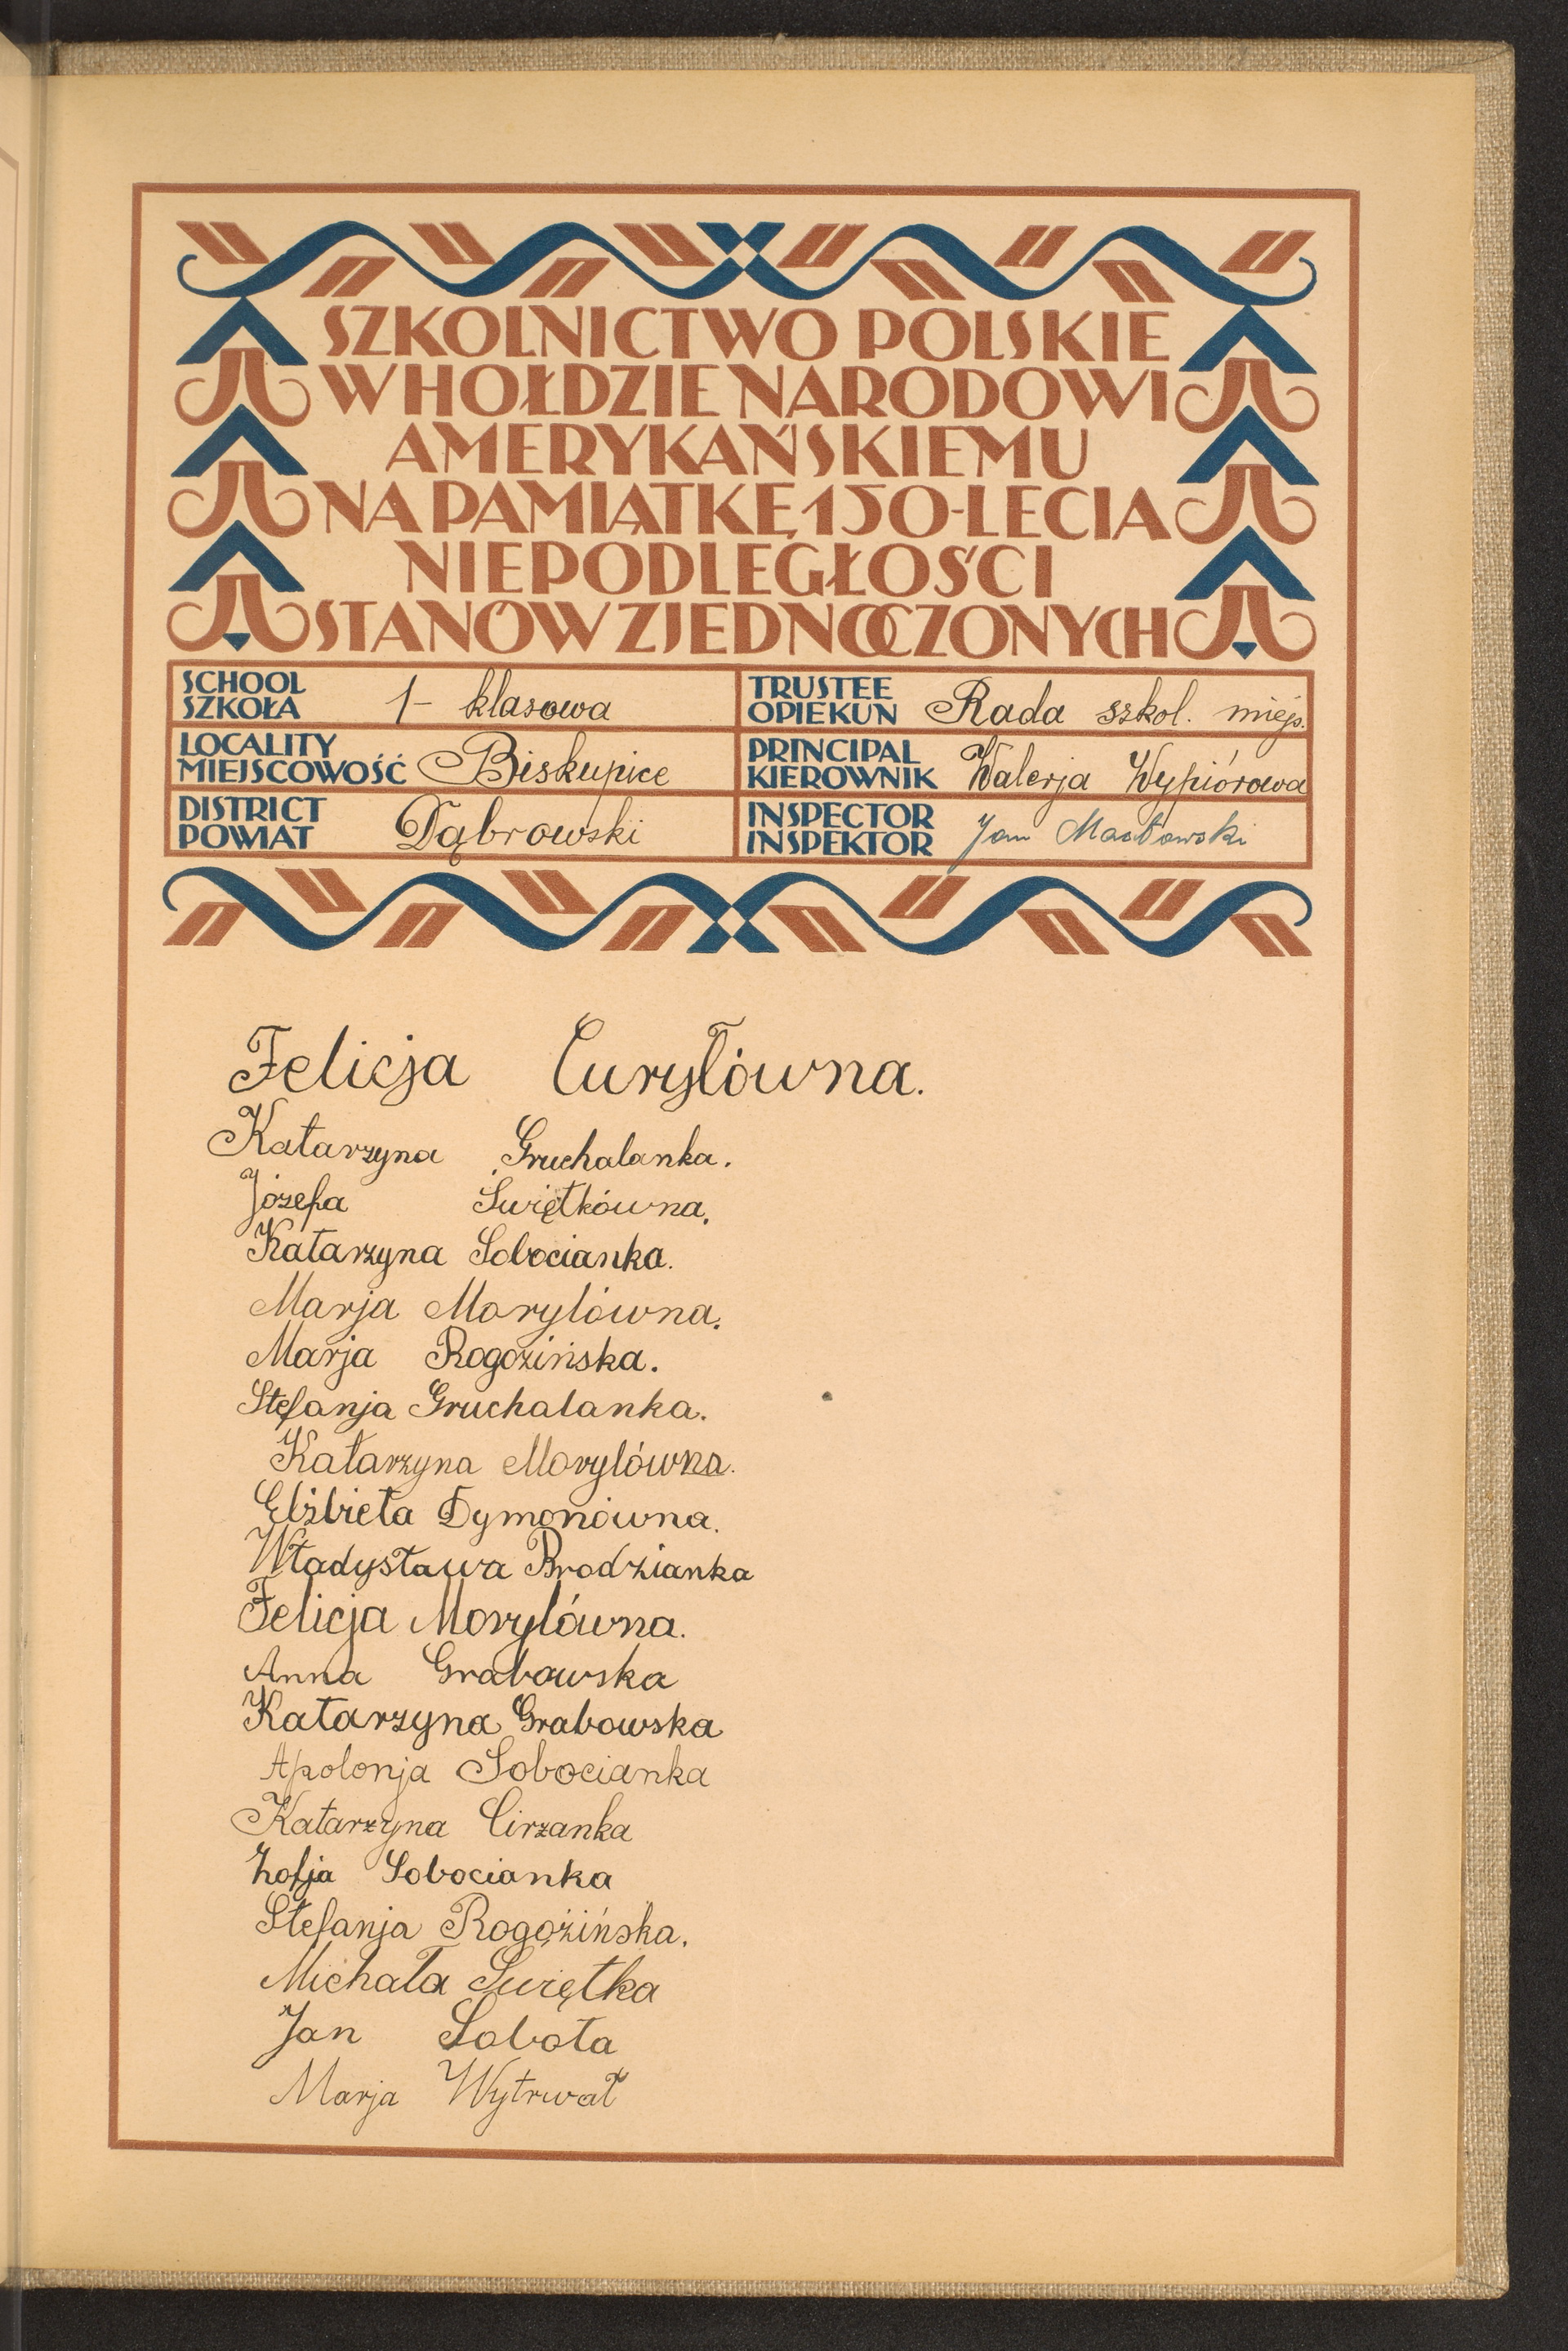 SZKOLNICTWO POLSKIE
W HOŁDZIE NARODOWI
AMERYKAŃSKIEMU
NA PAMIĄTKĘ 150-LECIA
NIEPODLEGŁOŚCI
STANÓW ZJEDNOCZONYCH
SCHOOL SZKOŁA 1- klasowa
TRUSTEE OPIEKUN Rada szkol. miejs.
LOCALITY MIEJSCOWOŚĆ Biskupice
PRINCIPAL KIEROWNIK Walerja Wypiórowa
DISTRICT POWIAT Dąbrowski
INSPECTOR INSPEKTOR Jan
Felicja Curyłówna.
Katarzyna Gruchalanka.
Józefa Świętkówna.
Katarzyna Sobocianka.
Marja Morylówna.
Marja Rogozińska.
Stefanja Gruchalanka.
Katarzyna Morylówna.
Elżbieta Dymonówna.
Władysława Brodzianka
Felicja Morylówna.
Anna Grabowska
Katarzyna Grabowska
Apolonja Sobocianka
Katarzyna Cirzanka
Zofja Sobocianka
Stefanja Rogozińska.
Michała Świętka
Jan Sobota
Marja Wytrwał